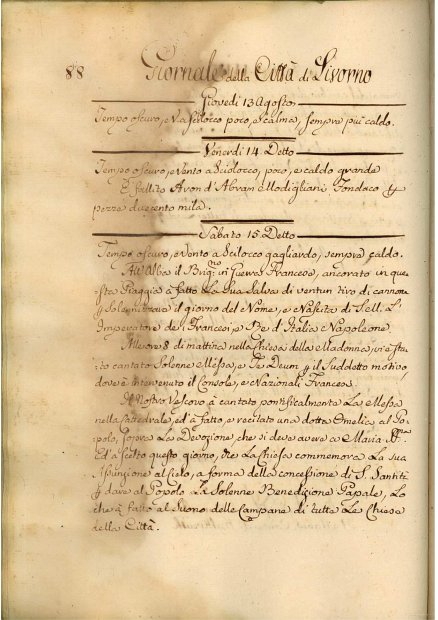 88 Giornale della Città di Livorno
Giovedi 13 Agosto
Tempo oscuro, e Va scilocco poco, e calma, sempre piu caldo.
Venerdi 14 Detto
Tempo oscuro, e Vento a Scilocco, poco, e caldo grande
È fallito Aron d'Abram e Modigliani Fondaco p
pezze duecento mila.
Sabato 15 Detto
Tempo oscuro, e Vento a Scilocco gagliardo, sempre caldo.
All'Alba il Brig.no in guerra Francese, ancorato in que-
sta Piaggia à fatto La Sua Salva di ventun tiro di cannone
p Solennizzare il giorno del Nome, e Nascita di S. ell. L'
Imperatore de Francesi, e Re d'Italia Napoleone.
Alle ore 8 di mattina nella Chiesa della Madonna, vi è sta-
to cantato Solenne Messa, e Te Deum p il Suddetto motivo,
dove è intervenuto il Console, e Nazionali Francesi.
Il Nostro Vescovo à cantato pontificalmente La Messa
nella Cattedrale, ed à fatto, e recitato una dotta Omelia al Po-
polo, sopra La Devozione, che si deve avere a Maria SS.ma
Ed à scelto questo giorno, che La Chiesa commemora La sua
Assunzione al Cielo, a forma della concessione di S. Santità
p dare al Popolo La Solenne Benedizione Papale, Lo
che à fatto al Suono delle Campane di tutte Le Chiese
della Città.